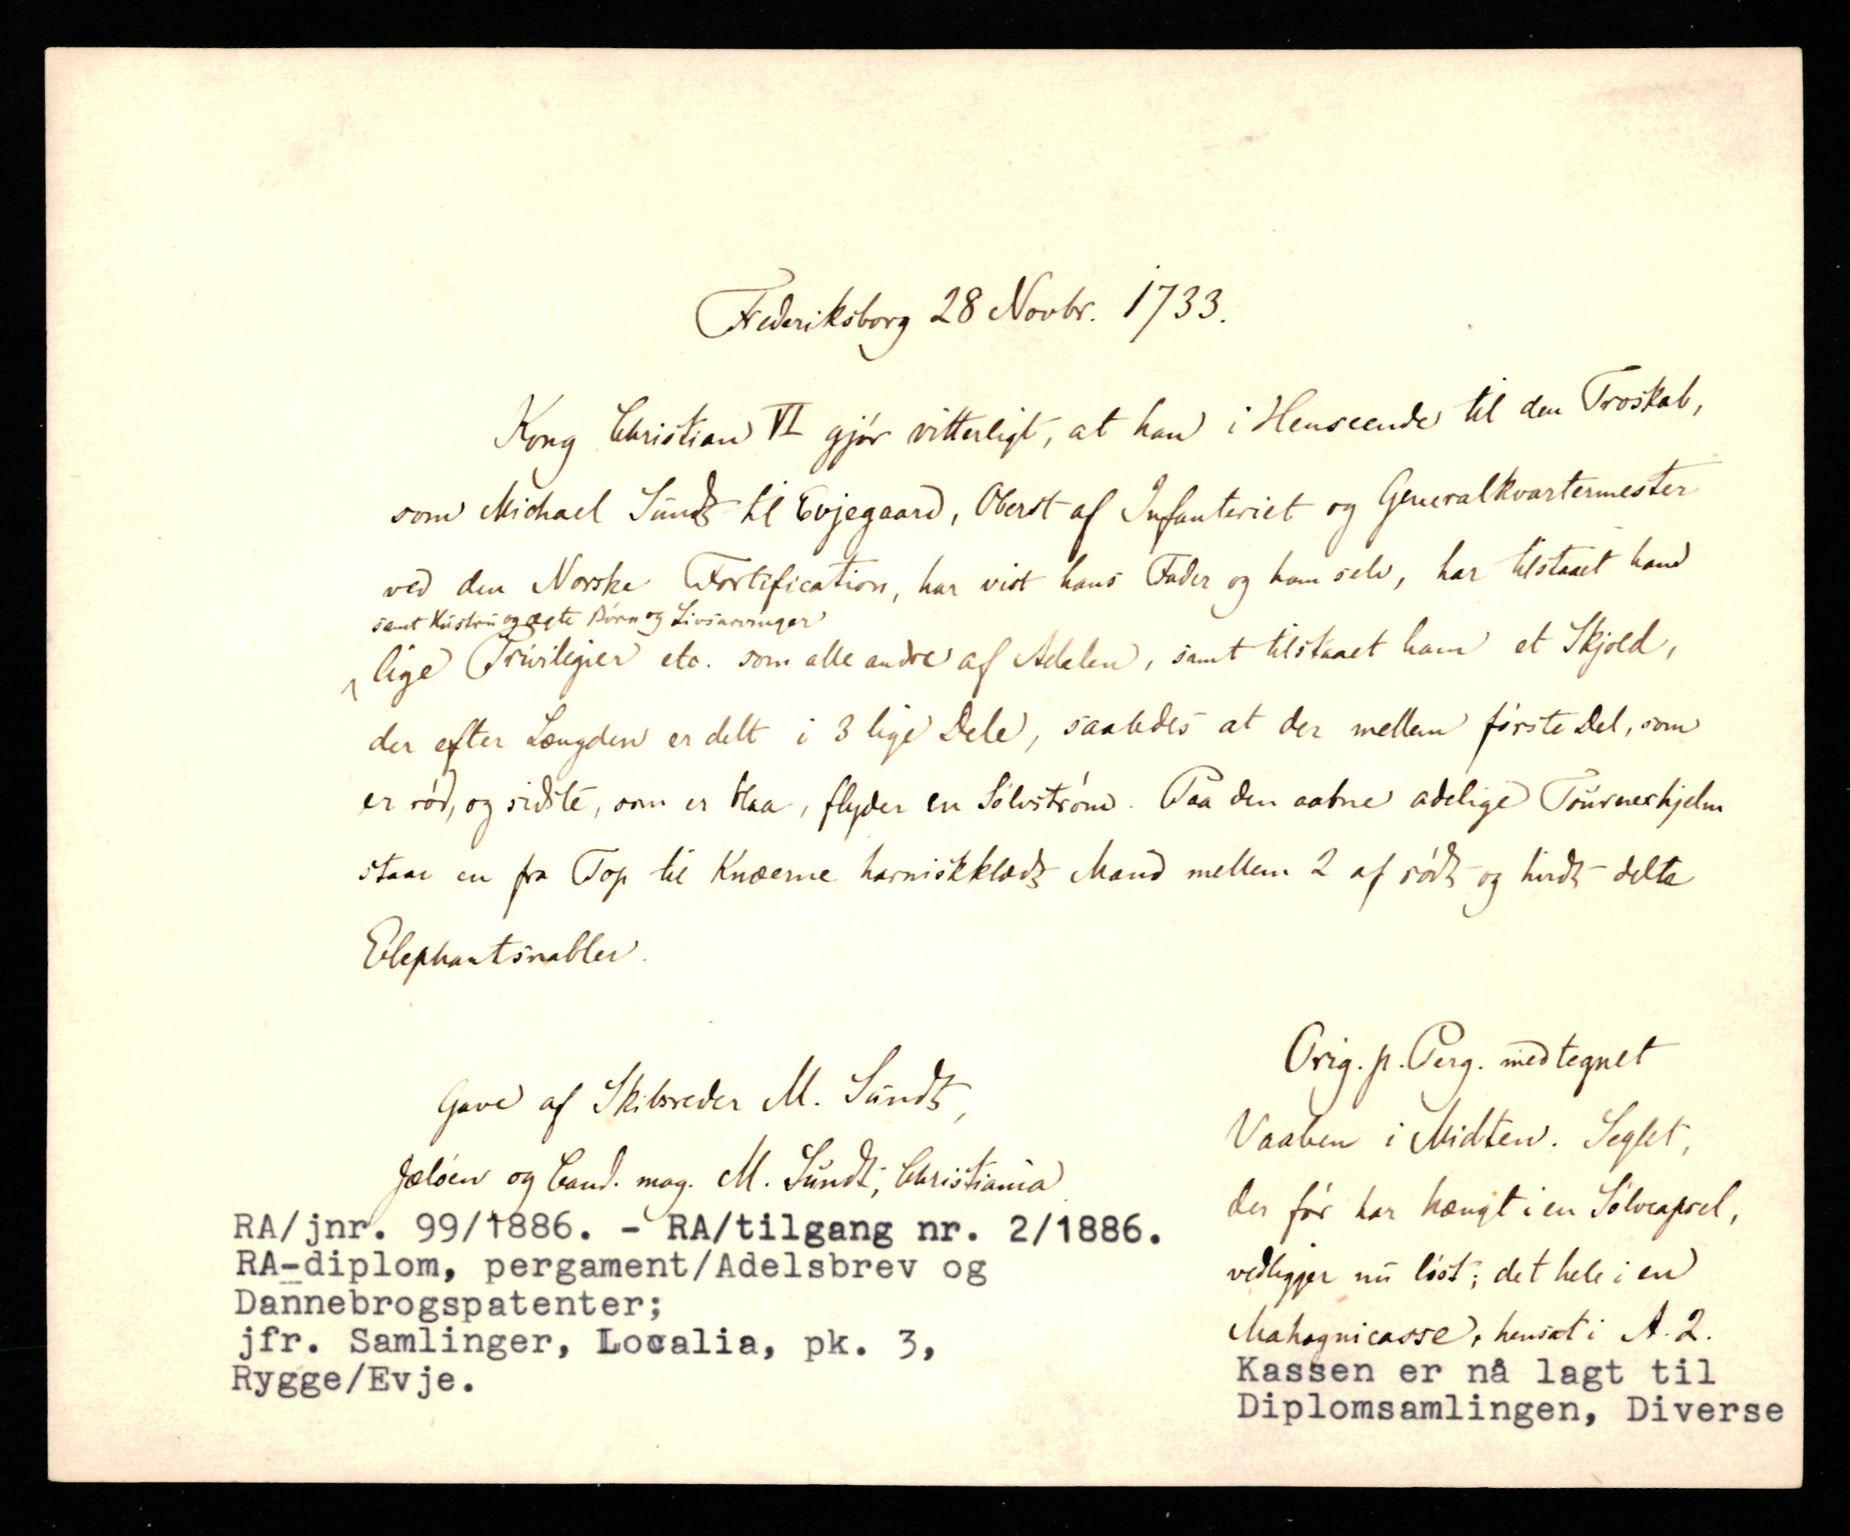 Frederiksborg 28 Novbr. 1733.
Kong Christian VI gjør vitterligt, at han i Henseende til den Troskab,
som Michael Sundt til Evjegaard, Oberst af Infanteriet og Generalkvartermester
ved den Norske Fortification, har vist hans Fader og ham selv, har tilstaaet ham
samt Hustru og ægte Børn og Livsarvinger
lige Privilegier etc. som alle andre af Adelen, samt tilstaaet ham et Skjold,
der efter Længden er delt i 3 lige Dele, saaledes at der mellem første Del, som
er rød, og sidste, som er blaa, flyder en Sølvstrøm. Paa den aabne adelige Tournerhjelm
staar en fra Top til Knæerne harniskklædt Mand mellem 2 af rødt og hvidt delte
Elephantsnabler.
Gave af Skibsreder M. Sundt,
Jeløen og Cand. mag. M. Sundt, Christiania
RA/jnr. 99/1886. - RA/tilgang nr. 2/1886.
RA-diplom, pergament/Adelsbrev og
Dannebrogspatenter;
jfr. Samlinger, Localia, pk. 3,
Rygge/Evje.
Orig. p. Perg. med tegnet
Vaaben i Midten. Seglet,
der før har hængt i en Sølvcapsel,
vedligger nu løst; det hele i en
Mahognicasse, hensat i A. 2.
Kassen er nå lagt til
Diplomsamlingen, Diverse